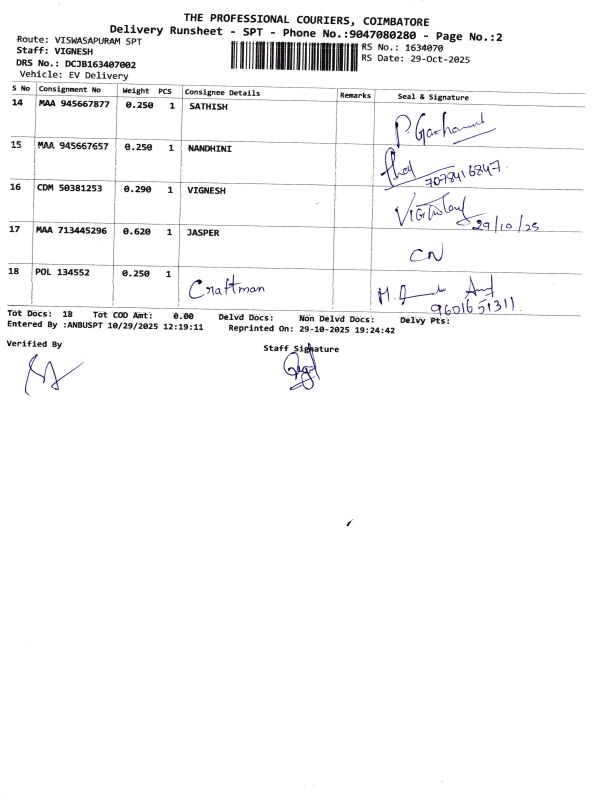 THE PROFESSIONAL COURIERS, COIMBATORE
Delivery Runsheet - SPT - Phone No.:9047080280 - Page No.:2
Route: VISWASAPURAM SPT
Staff: VIGNESH
DRS No.: DCJB163407002
Vehicle: EV Delivery
RS No.: 1634070
RS Date: 29-Oct-2025
S No Consignment No Weight PCS Consignee Details Remarks Seal & Signature
14 MAA 945667877 0.250 1 SATHISH
15 MAA 945667657 0.250 1 NANDHINI
7078416847
16 CDM 50381253 0.290 1 VIGNESH
29/10/25
17 MAA 713445296 0.620 1 JASPER CN
18 POL 134552 0.250 1 Craftman
9601651311
Tot Docs: 18 Tot COD Amt: 0.00 Delvd Docs: Non Delvd Docs: Delvy Pts:
Entered By :ANBUSPT 10/29/2025 12:19:11 Reprinted On: 29-10-2025 19:24:42
Verified By Staff Signature